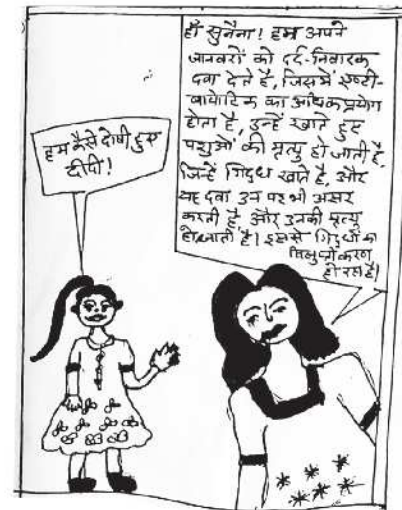 हम कैसे दोषी हुए
दीदी!
हाँ सुनैना! हम अपने
जानवरों को दर्द-निवारक
दवा देते है, जिसमें एण्टी-
बायोटिक का अधिक प्रयोग
होता है, उन्हें खाते हुए
पशुओं की मृत्यु हो जाती है,
जिन्हें गिद्ध खाते है, और
यह दवा उन पर भी असर
करती है और उनकी मृत्यु
हो जाती है। इससे गिद्धों का
विलुप्तीकरण
हो रहा है।